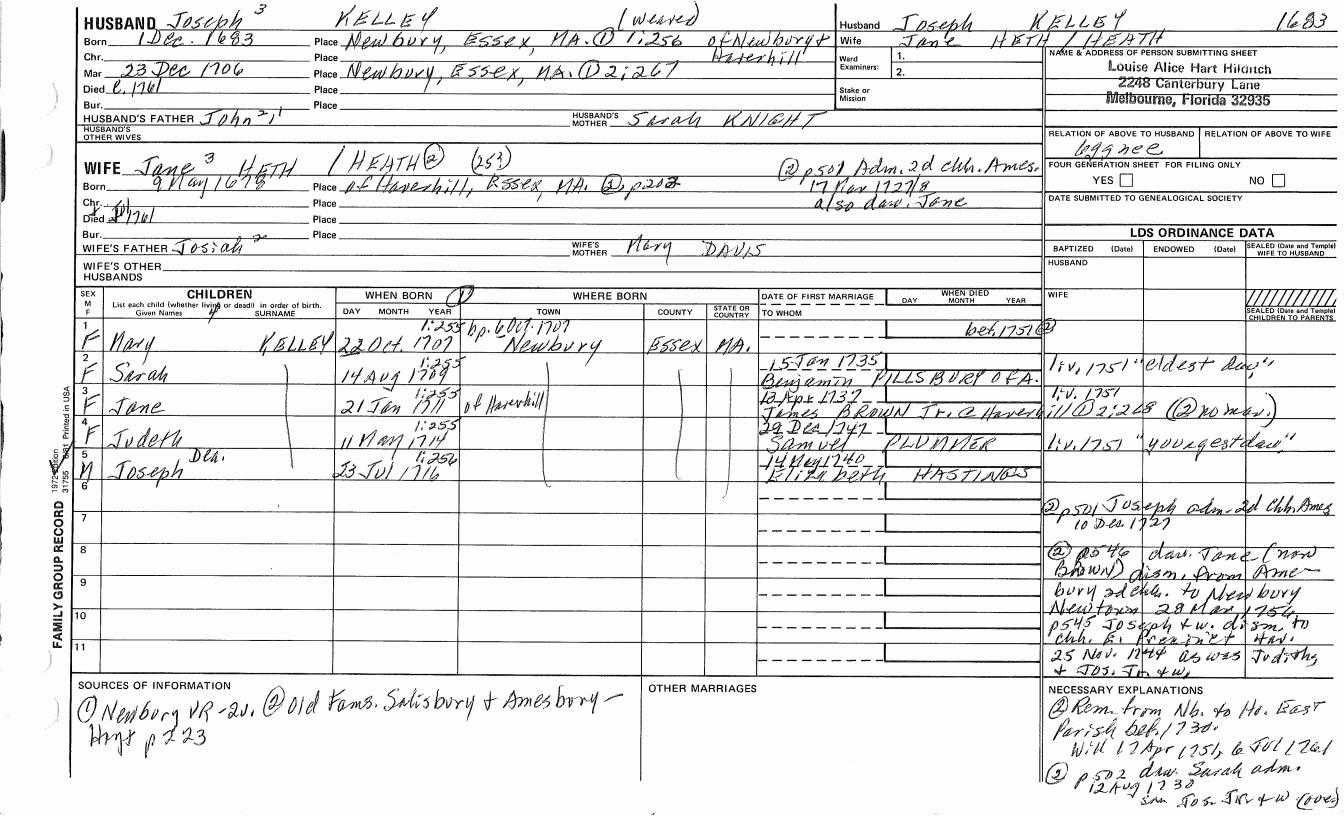 HUSBAND Joseph 3 KELLEY (weaver)
Born 1 Dec. 1683 Place Newbury, Essex, MA. ① 1:256 of Newbury +
Haverhill
Chr. Place
Mar 23 Dec 1706 Place Newbury, Essex, MA. ① 2:267
Died Place
Bur. Place
HUSBAND'S FATHER John 2, 1 HUSBAND'S MOTHER Sarah KNIGHT
HUSBAND'S OTHER WIVES
WIFE Jane 3 HETH / HEATH ② (25?)
② p501 Adm. 2d chh. Ames.
17 Mar 1727/8
also daw. Jane
Born 9 May 1678 Place of Haverhill, Essex, MA. ② p202
Chr. Place
Died 1761 Place
Bur. Place
WIFE'S FATHER Josiah 2 WIFE'S MOTHER Mary DAVIS
WIFE'S OTHER HUSBANDS
Husband Joseph KELLEY 1683
Wife Jane HETH / HEATH
Ward Examiners: 1.
2.
Stake or Mission
NAME & ADDRESS OF PERSON SUBMITTING SHEET
Louise Alice Hart Hilditch
2248 Canterbury Lane
Melbourne, Florida 32935
RELATION OF ABOVE TO HUSBAND RELATION OF ABOVE TO WIFE
6ggnee
FOUR GENERATION SHEET FOR FILING ONLY
YES NO
DATE SUBMITTED TO GENEALOGICAL SOCIETY
LDS ORDINANCE DATA
BAPTIZED (Date) ENDOWED (Date) SEALED (Date and Temple) WIFE TO HUSBAND
HUSBAND
WIFE
SEALED (Date and Temple) CHILDREN TO PARENTS
SEX M F
CHILDREN
List each child (whether living or dead) in order of birth.
Given Names SURNAME
WHEN BORN ①
DAY MONTH YEAR
WHERE BORN
TOWN COUNTY STATE OR COUNTRY
DATE OF FIRST MARRIAGE
TO WHOM
WHEN DIED
DAY MONTH YEAR
1 F Mary KELLEY 22 Oct. 1707 1:255 bp. 6 Oct. 1707 Newbury Essex MA. bef. 1751 ②
2 F Sarah 14 Aug 1709 1:255 15 Jan 1735 Benjamin PILLSBURY of A. liv. 1751 "eldest daw"
3 F Jane 21 Jan 1711 1:255 of Haverhill 12 Apr 1737 James BROWN Jr. @ Haverhill ① 2:268 (② no mar.) liv. 1751
4 F Judeth 11 May 1714 1:255 29 Dec 1747 Samuel PLUMMER liv. 1751 "youngest daw"
5 M Joseph Dea. 23 Jul 1716 1:256 14 May 1740 Elizabeth HASTINGS
6
7
8
9
10
11
② p501 Joseph adm. 2d chh. Ames
10 Dec. 1727
② p546 daw. Jane (now
BROWN) dism. from Ame-
bury 2d chh. to Newbury
Newtown 28 Mar 1756
p545 Joseph + w. dism. to
chh. E. Precinct Hav.
25 Nov. 1744 as was Judith
+ Jos. Jr. + w.
FAMILY GROUP RECORD
Printed in USA
SOURCES OF INFORMATION
① Newbury VR - 2v. ② Old Fams. Salisbury + Amesbury -
Hoyt p 223
OTHER MARRIAGES
NECESSARY EXPLANATIONS
② Rem. from Nb. to Ha. East
Parish bef. 1730.
Will 17 Apr 1751, 6 Jul 1761
② p502 daw. Sarah adm.
12 Aug 1738
Jos. Jr. + w (over)